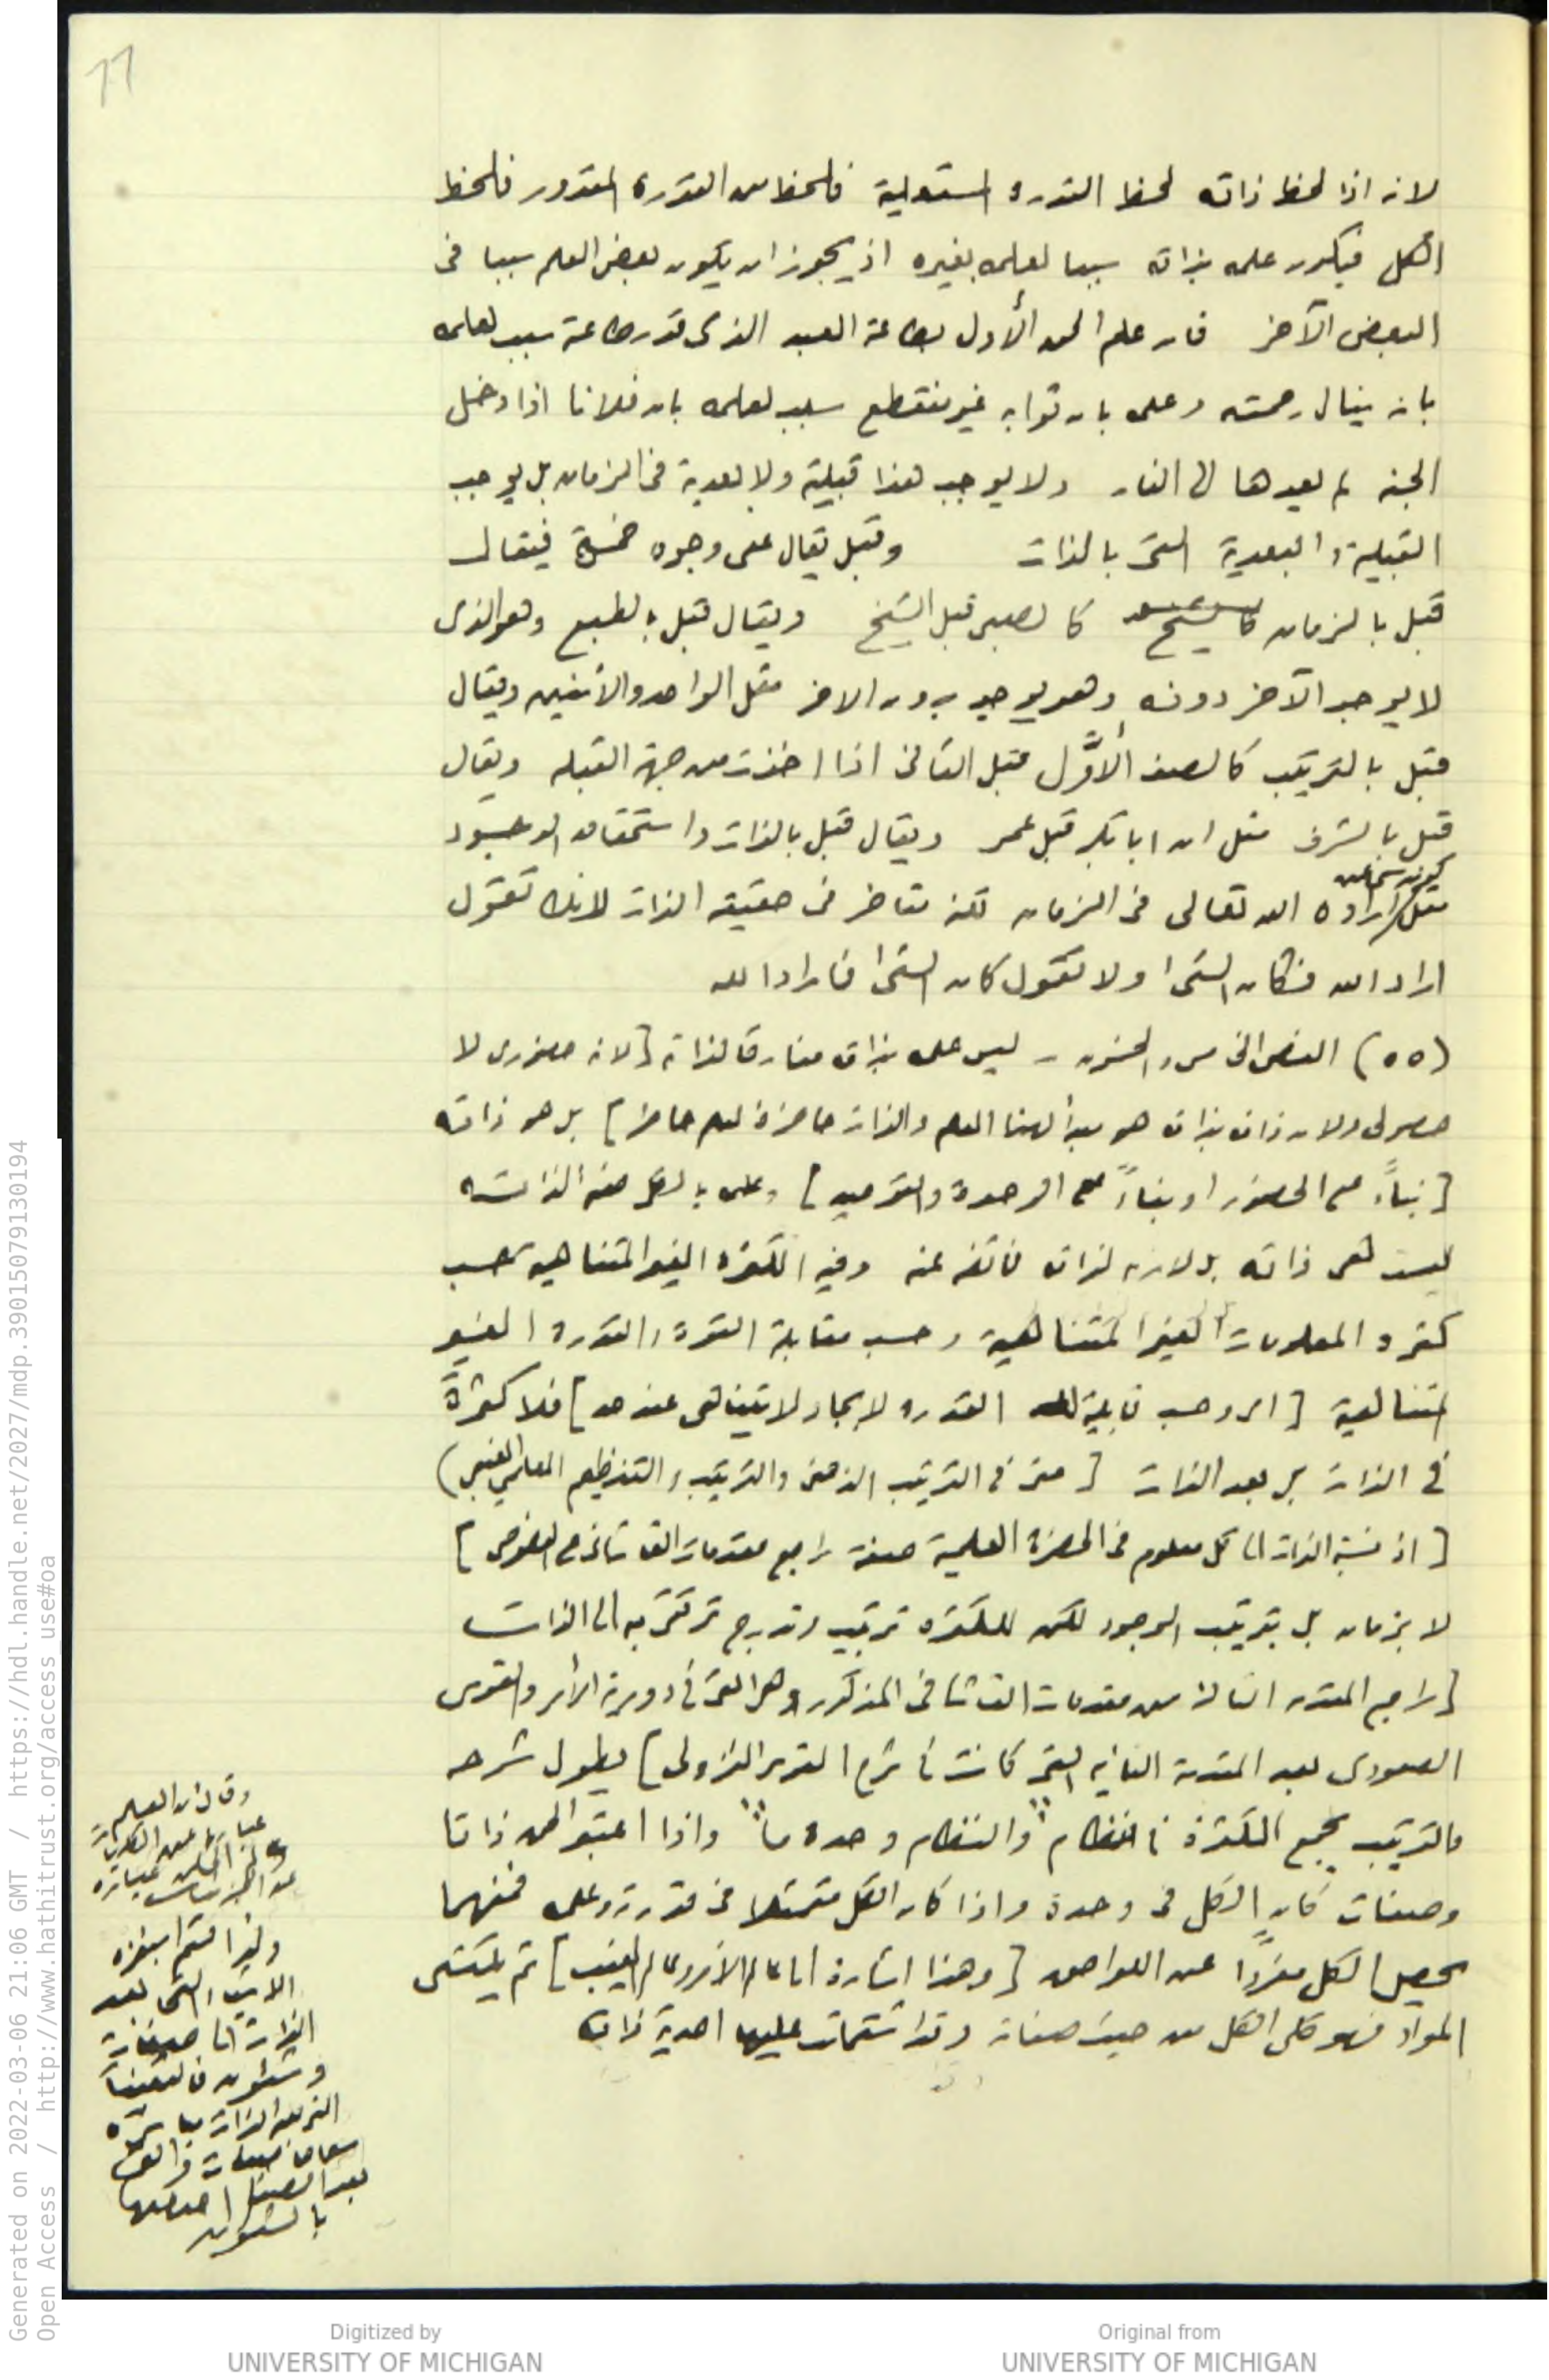 77
لانه اذا لحظ ذاته لحظ القدرة المستعلية فلحظ من القدرة المقدور فلحظ
الكل فيكون علمه بذاته سببا لعلمه بغيره اذ يجوز ان يكون بعض العلم سببا فى
البعض الآخر فان علم الحق الأول بطاعة العبد الذى قدر طاعته سبب لعلمه
بانه ينال رحمته وعلمه بان ثوابه غير منقطع سبب لعلمه بان فلانا اذا دخل
الجنة لم يعدها الى النار ولا يوجب هذا قبلية ولا بعدية فى الزمان بل يوجب
القبلية والبعدية التى بالذات وقبل يقال على وجوه خمسة فيقال
قبل بالزمان كالشيخ كالصبى قبل الشيخ ويقال قبل بالطبع وهو الذى
لا يوجد الآخر دونه وهو يوجد بدون الاخر مثل الواحد والاثنين ويقال
قبل بالترتيب كالصف الأوَّل قبل الثانى اذا اخذت من جهة القبله ويقال
قبل بالشرف مثل ان ابا بكر قبل عمر ويقال قبل بالذات واستحقاق الوجود
مثل ارادة الله تعالى فى الزمان لكنه متاخر فى حقيقة الذات لانك تقول
اراد الله فكان الشئ ولا تقول كان الشئ فاراد الله
(٥٥) الفص الخامس والخمسون - ليس علمه بذاته مفارقا لذاته [لانه حضورى لا
حصولى ولان ذاته بذاته هو مبدأ لهذا العلم والذات حاضرة لعلم حاضر] بل هو ذاته
[بناءً على الحضور او بناءً على الوحدة والتوحيد] وعلمه بالكل صفة لذاته
ليست هى ذاته بل لازمه لذاته فائضه عنه وفيه الكثرة الغير المتناهية بحسب
كثرة المعلومات الغير المتناهية وحسب مقابلة القوة والقدرة الغير
المتناهية [اى وحسب قابلية القدرة لايجاد لا يتناهى عند حد] فلا كثرةَ
فى الذات بل بعد الذات [حتى فى الترتيب الذهنى والترتيب والتنظيم العلمي الغيبى)
[اذ نسبة الذات الى كل معلوم فى الحضرة العلمية صفة راجع مقدمات القاشانى على الفصوص]
لا بزمان بل بترتيب الوجود لكن للكثرة ترتيب وتدرج ترتقى به الى الذات
[راجع المقدمه الثالثة من مقدمات القاشانى المذكور وهى التى فى دورية الأمر والقوس
الصعودى بعد المقدمة الثانيه التى كانت فى شرح القوس النزولى] يطول شرحه
والترتيب يجمع الكثرة فى نظام "والنظام وحدة ما" واذا اعتبر الحق ذاتا
وصفات كان الكل فى وحدة واذا كان الكل متمثلا فى قدرته وعلمه فمنهما
يحصل الكل مفردًا عن اللواحق [وهذا اشارة الى عالم الأمر وعالم الغيب] ثم يكتسى
المواد فهو كلى الكل من حيث صفاته وقد اشتملت عليها احدية ذاته
وقال ان العلم
عبارة عن الكليات
ولهذا قسم
الاشياء التى بعد
الذات الى صفات
وشئون
بالشئون
Generated on 2022-03-06 21:06 GMT / https://hdl.handle.net/2027/mdp.39015079130194
Open Access / http://www.hathitrust.org/access_use#oa
Digitized by
UNIVERSITY OF MICHIGAN
Original from
UNIVERSITY OF MICHIGAN